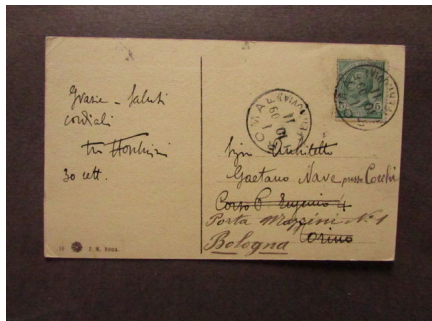 Grazie – Saluti
cordiali
30 sett.
Sign. Architetto
Gaetano Nave presso
Corso P. Eugenio 4
Porta Mazzini N. 1
Bologna Torino
ROMA FERROVIA